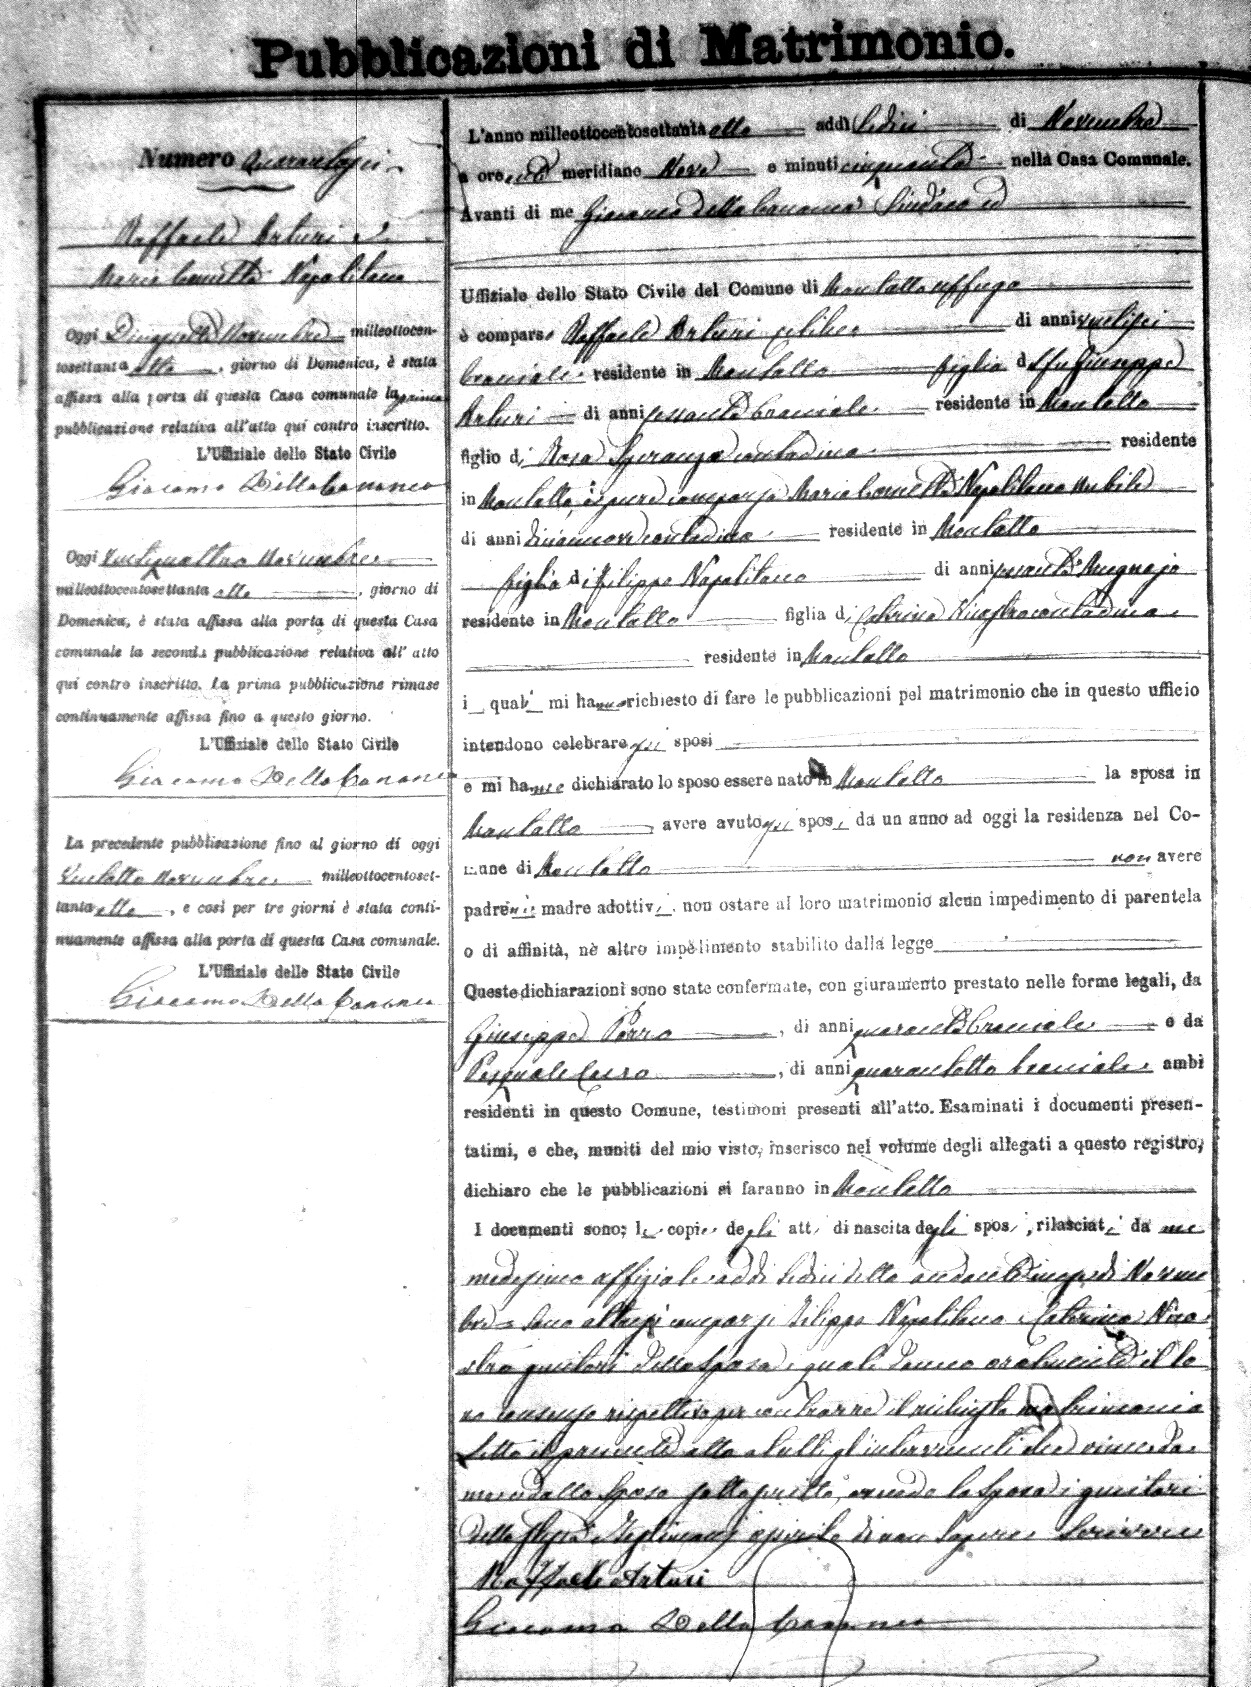 Pubblicazioni di Matrimonio.
Numero Quarantasei
Raffaele Arturi e
Maria Concetta Napolitano
Oggi Diciassette Novembre milleottocen-
tosettanta otto, giorno di Domenica, è stata
affissa alla porta di questa Casa comunale la prima
pubblicazione relativa all'atto qui contro inscritto.
L'Uffiziale dello Stato Civile
Giacomo Della Cananea
Oggi Ventiquattro Novembre
milleottocentosettanta otto, giorno di
Domenica, è stata affissa alla porta di questa Casa
comunale la seconda pubblicazione relativa all' atto
qui contro inscritto. La prima pubblicazione rimase
continuamente affissa fino a questo giorno.
L'Uffiziale dello Stato Civile
Giacomo Della Cananea
La precedente pubblicazione fino al giorno di oggi
Ventotto Novembre milleottocentoset-
tanta otto, e così per tre giorni è stata conti-
nuamente affissa alla porta di questa Casa comunale.
L'Uffiziale dello Stato Civile
Giacomo Della Cananea
L'anno milleottocentosettanta otto addì Sedici di Novembre
a ore anti meridiane Nove e minuti cinquanta nella Casa Comunale.
Avanti di me Giacomo Della Cananea Sindaco ed
Uffiziale dello Stato Civile del Comune di Montalto Uffugo
è comparso Raffaele Arturi celibe di anni ventisei
bracciale residente in Montalto figlio del fu Giuseppe
Arturi di anni sessanta bracciale residente in Montalto
figlio di Rosa Speranza contadina residente
in Montalto, è pure comparsa Maria Concetta Napolitano nubile
di anni diciannove contadina residente in Montalto
figlia di Filippo Napolitano di anni sessanta Mugnajo
residente in Montalto figlia di Caterina Nicastro contadina
residente in Montalto
i quali mi hanno richiesto di fare le pubblicazioni pel matrimonio che in questo ufficio
intendono celebrare gli sposi
e mi hanno dichiarato lo sposo essere nato in Montalto la sposa in
Montalto, avere avuto gli sposi da un anno ad oggi la residenza nel Co-
mune di Montalto non avere
padre nè madre adottivi, non ostare al loro matrimonio alcun impedimento di parentela
o di affinità, nè altro impedimento stabilito dalla legge
Queste dichiarazioni sono state confermate, con giuramento prestato nelle forme legali, da
Giuseppe Porro, di anni quaranta bracciale e da
Pasquale Caira, di anni quarantotto bracciale ambi
residenti in questo Comune, testimoni presenti all'atto. Esaminati i documenti presen-
tatimi, e che, muniti del mio visto, inserisco nel volume degli allegati a questo registro,
dichiaro che le pubblicazioni si faranno in Montalto
I documenti sono; le copie degli atti di nascita degli sposi, rilasciati da me
medesimo uffiziale addi Sedici dello andante mese di Novem
bre = Sono altresì comparsi Filippo Napolitano e Caterina Nica
stro genitori della Sposa, i quali danno oralmente il lo
ro consenso rispettivo per contrarre il richiesto matrimonio
Letto il presente atto a tutti gl'intervenuti che viene da
me e dallo Sposo sottoscritto, avendo la Sposa, i genitori
della stessa e testimoni asserito di non sapere Scrivere
Raffaele Arturi
Giacomo Della Cananea